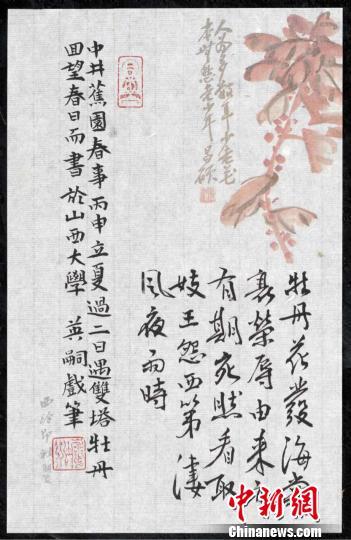 昌碩
牡丹花發海棠
衰榮辱由來
有期宛然看取
妓王怨西第凄
風夜雨時
中井蕉園春事丙申立夏過二日遇雙塔牡丹
回望春日而書於山西大學 英嗣戲筆
中新網
www.chinanews.com